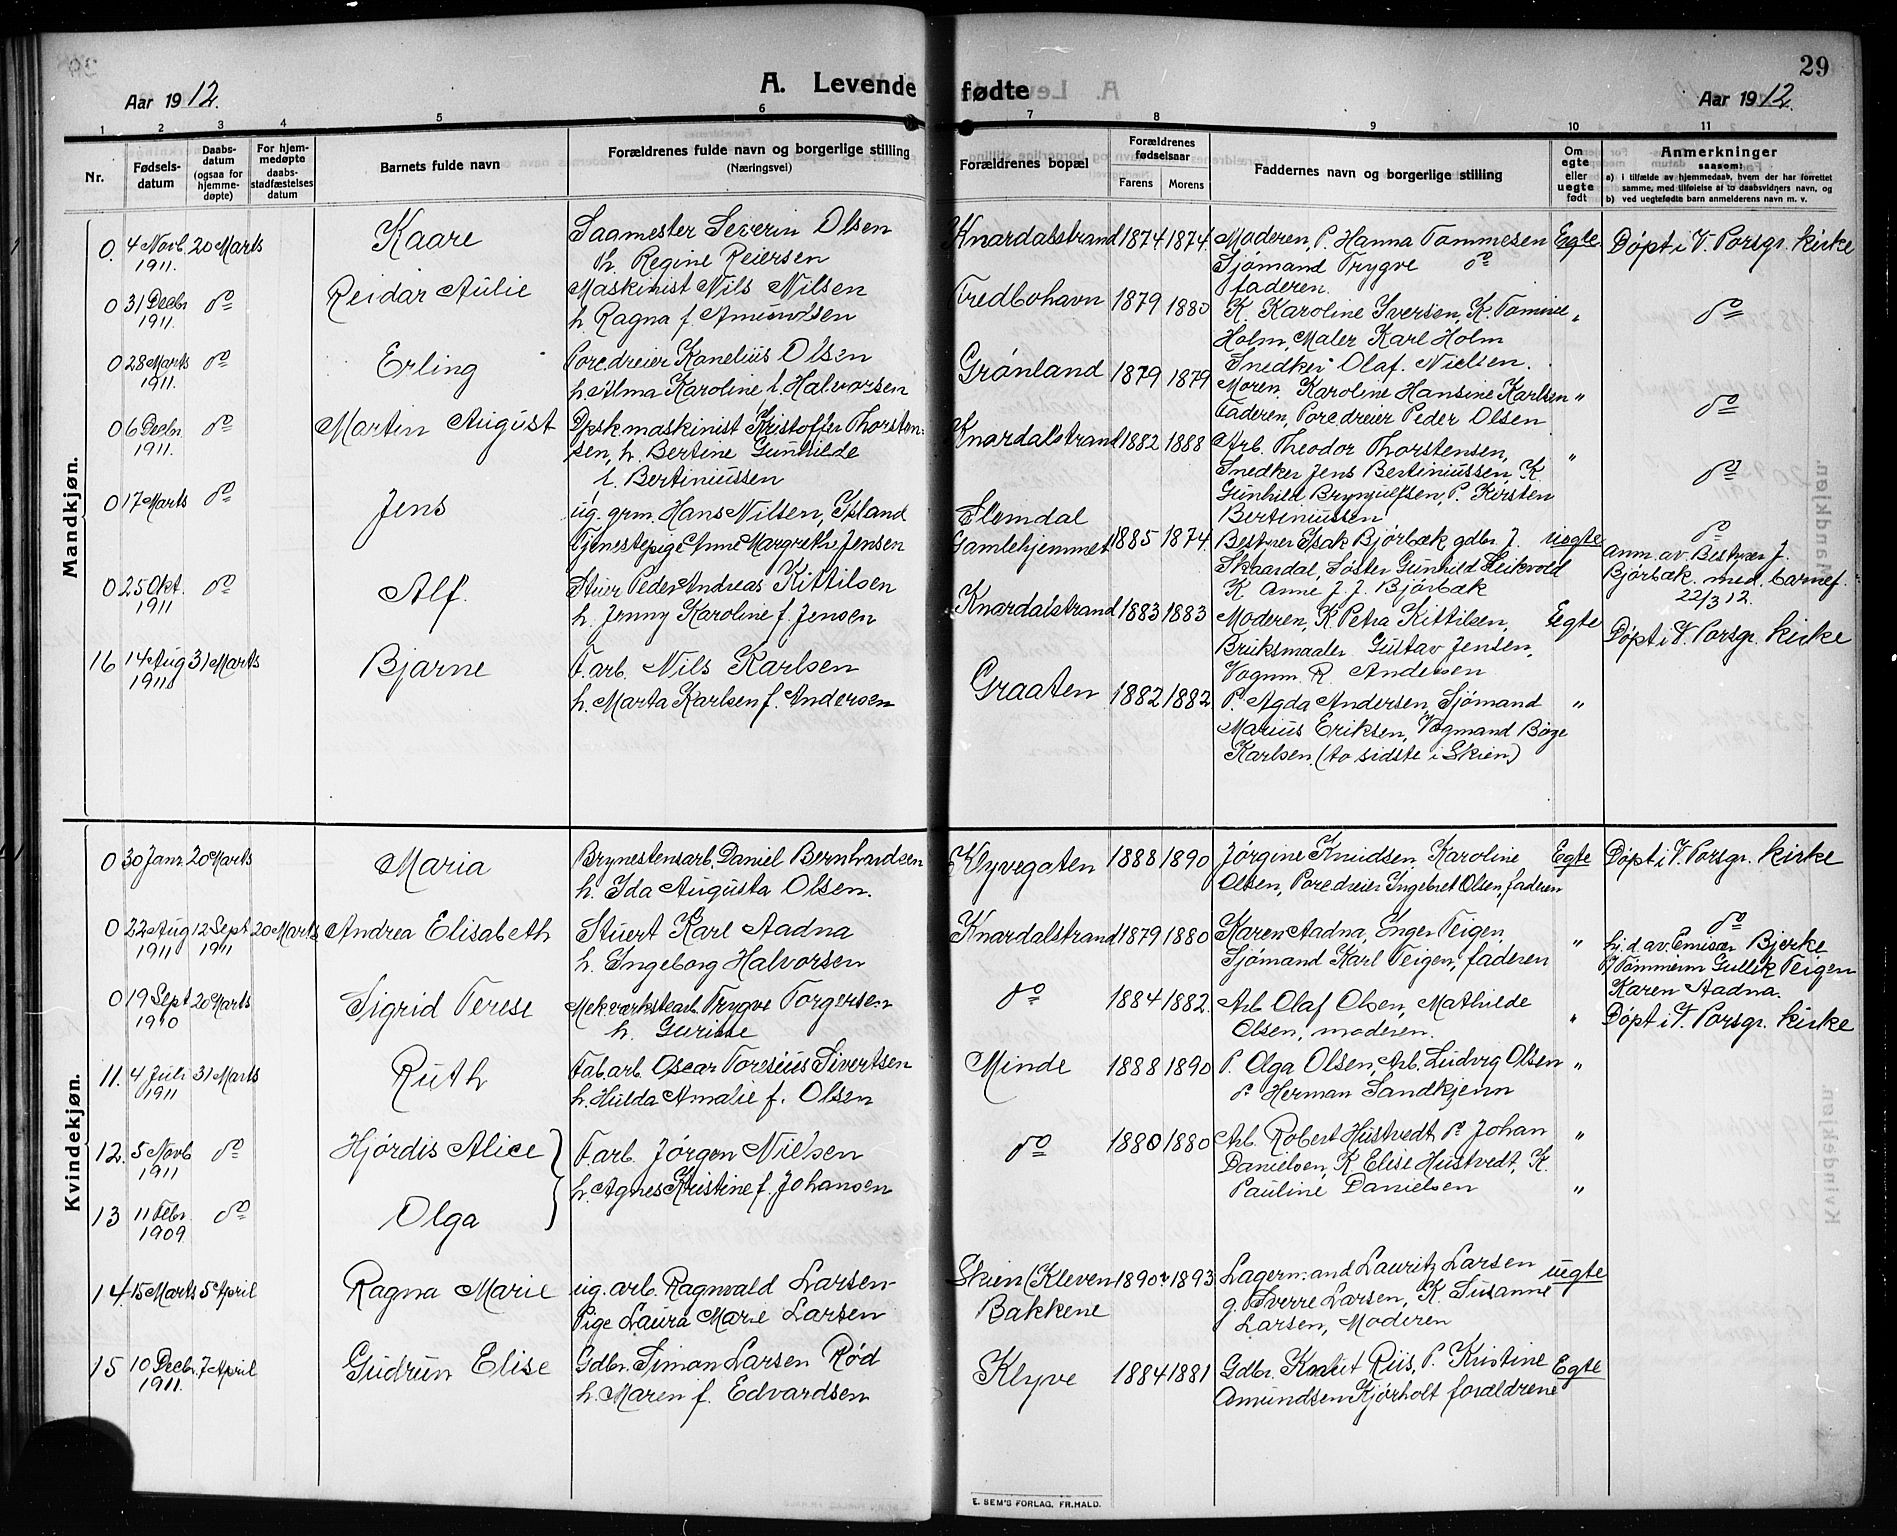 29
A. Levende fødte
Aar 1912.
Aar 1912.
1 2 3 4 5 6 7 8 9 10 11
Nr.
Fødsels-datum
Daabs-datum (ogsaa for hjemme-døpte)
For hjem-medøpte daabs-stadfæstelses datum
Barnets fulde navn
Forældrenes fulde navn og borgerlige stilling
(Næringsvei)
Forældrenes bopæl
Forældrenes fødselsaar
Farens Morens
Faddernes navn og borgerlige stilling
Om egte eller uegte født
Anmerkninger
saasom:
a) i tilfælde av hjemmedaab, hvem der har forrettet samme, med tilføielse af to daabsvidners navn, og
b) ved uegtefødte barn anmelderens navn m. v.
Mandkjøn.
0. 4 Novb. 1911. 20 Marts Kaare
Saamester Severin Olsen
h. Regine Reiersen
Knardalstrand 1874 1874.
Moderen, P. Hanna Tommesen
Sjømand Trygve do
faderen.
Egte. Døpt i V. Porsgr. kirke
0 31 Decbr 1911. do Reidar Aulie
Maskinist Nils Nilsen
h. Ragna f. Amundsen
Fredbohavn 1879 1880
K. Karoline Iversen, K. Tomine
Holm, Maler Karl Holm
" do
0 28 Marts 1911. do Erling
Poredreier Kanelius Olsen
h. Alma Karoline f. Halvorsen
Grønland 1879 1879
Snedker Olaf Nielsen.
Moren, Karoline Hansine Karlsen
Faderen, Poredreier Peder Olsen
" do
0 6 Decbr 1911. do Martin August
Dpsk. maskinist Kristoffer Thorsten-
sen, h. Bertine Gunhilde
f. Bertiniussen
Knardalstrand 1882 1888
Arb. Theodor Thorstensen,
Snedker Jens Bertiniussen, K.
Gunhild Brynjulfsen, P. Kirsten
Bertiniussen
" do
0 17 Marts do Jens
ug. grm. Hans Nilsen, Island
Tjenestepige Anne Margrethe Jensen
Slemdal
Gamlehjemmet 1885 1874.
Bestyrer Isak Bjørbæk gdbr. J.
Skaardal, Søster Gunhild Sleikvold
K. Anne J. J. Bjørbæk
uegte do
Anm. av Bestyrer J.
Bjørbæk. med barnef.
22/3 12.
0 25 Okt. 1911 do Alf.
Stuer Peder Andreas Kittilsen
h. Jenny Karoline f. Jensen
Knardalstrand 1883 1883
Moderen, K Petra Kittilsen,
Bruksmaaler Gustav Jensen,
Vognm. R. Andersen
Egte Døpt i V. Porsgr. kirke
16 14 Aug 1911 31 Marts Bjarne
F. arb. Nils Karlsen
h. Marta Karlsen f. Andersen
Graaten 1882 1882
P. Agda Andersen, Sjømand
Marius Eriksen, Vogmand Børge
Karlsen. (to sidste i Skien)
"
Kvindekjøn.
0 30 Janr. 20 Marts Maria
Brynestensarb. Daniel Bernhardsen
h. Ida Augusta Olsen.
Klyvegaten 1888 1890
Jørgine Knudsen Karoline
Olsen, Poredreier Ingebret Olsen, faderen
Egte Døpt i V. Porsgr. kirke
0 22 Aug 1911 12 Sept 1911 20 Marts Andrea Elisabeth
Stuert Karl Aadna
h. Ingeborg Halvorsen
Knardalstrand 1879 1880
Karen Aadna, Inger Teigen,
Sjømand Karl Teigen, faderen
" do
hj. d. av. Emisær Bjerke
Tømmerm Gullik Teigen
Karen Aadna.
0 19 Sept 1910 20 Marts Sigrid Terese
Mek.værkstearb. Trygve Torgersen
h. Gurine
do 1884 1882.
Arb Olaf Olsen, Mathilde
Olsen, moderen.
" Døpt i V. Porsgr. kirke
11. 4 Juli 1911 31 Marts Ruth
Fab. arb. Oscar Toresius Sivertsen
h. Hulda Amalie f. Olsen
Minde 1888 1890
P. Olga Olsen, Arb. Ludvig Olsen
do Herman Sandkjenn
"
12. 5 Novb 1911 do Hjørdis Alice
F. arb. Jørgen Nielsen
h. Agnes Kristine f. Johansen
do 1880 1880
Arb. Robert Hustvedt, do Johan
Danielsen, K. Elise Hustvedt, K.
Pauline Danielsen
"
13 11 Febr. 1909. do Olga
"
14. 15 Marts 5 April Ragna Marie
ug. arb. Ragnvald Larsen
Pige Laura Marie Larsen
Skien (Kleven
Bakkene 1890 1893
Lagerm. and Lauritz Larsen
g. Sverre Larsen, K. Susanne
Larsen, Moderen
uegte
15 10 Decbr. 1911. 7 April Gudrun Elise
Gdbr. Simon Larsen Rød
h. Maren f. Edvardsen
Klyve 1884 1881
Gdbr. Knut Riis, P. Kristine
Amundsen Kjørholt forældrene
Egte
E. SEM'S FORLAG, FR.HALD.